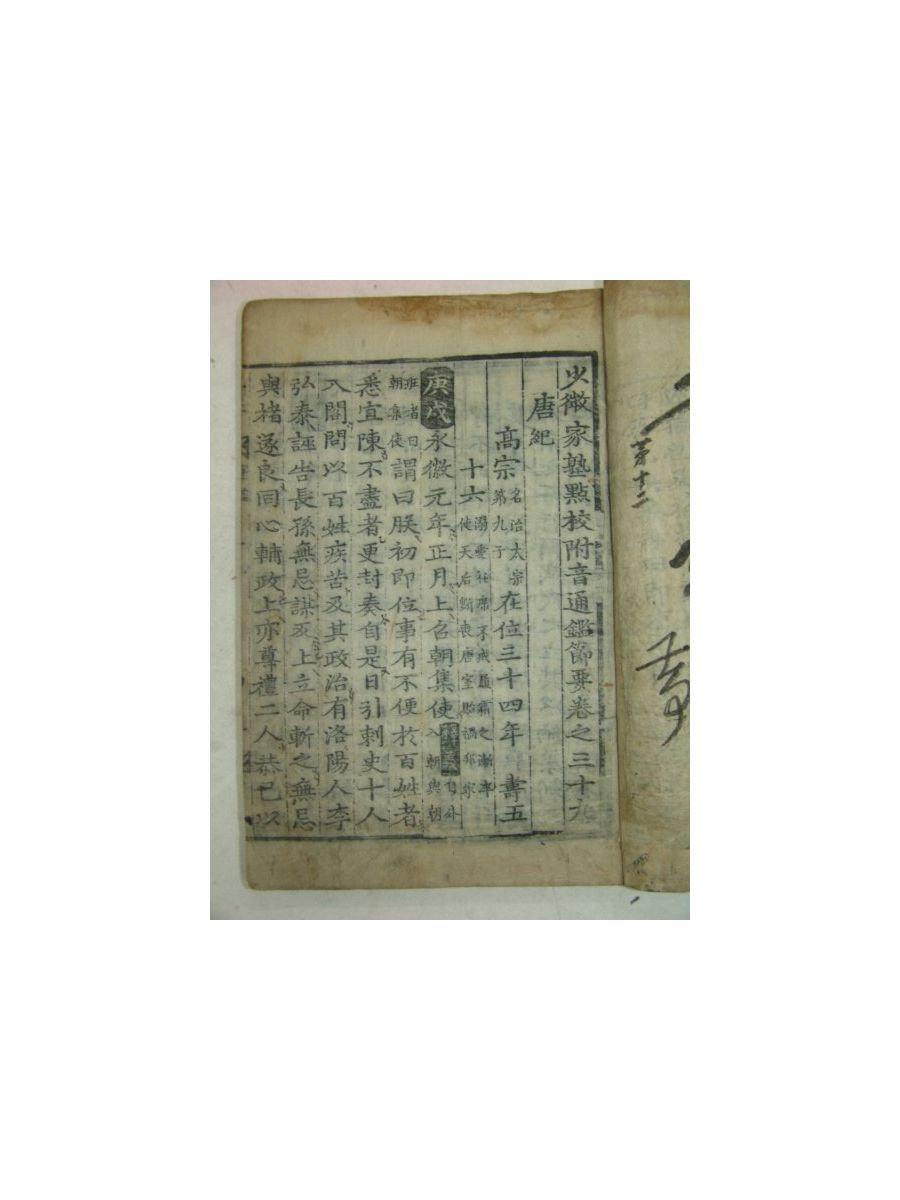 少微家塾點校附音通鑑節要卷之三十六
唐紀
高宗 名治太宗第九子 在位三十四年 壽五
十六 溺愛衽席不戒履霜之漸卒使天后斲喪唐室貽禍邦家
庚戌 永徽元年正月上召朝集使 釋義 入朝與朝
班者曰朝集使 謂曰朕初即位事有不便於百姓者
悉宜陳不盡者更封奏自是日引刺史十人
入閤問以百姓疾苦及其政治有洛陽人李
弘泰誣告長孫無忌謀反上立命斬之無忌
與褚遂良同心輔政上亦尊禮二人恭己以
第十二